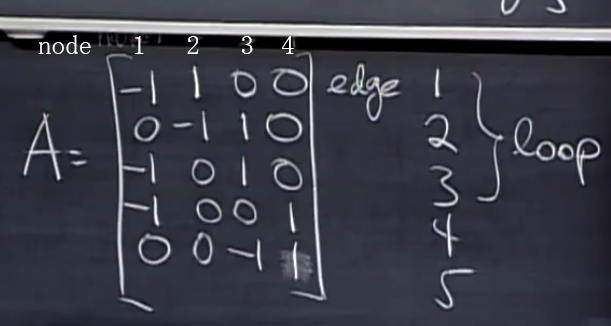 node 1 2 3 4
-1 1 0 0 edge 1
0 -1 1 0 2
A= -1 0 1 0 3 loop
-1 0 0 1 4
0 0 -1 1 5